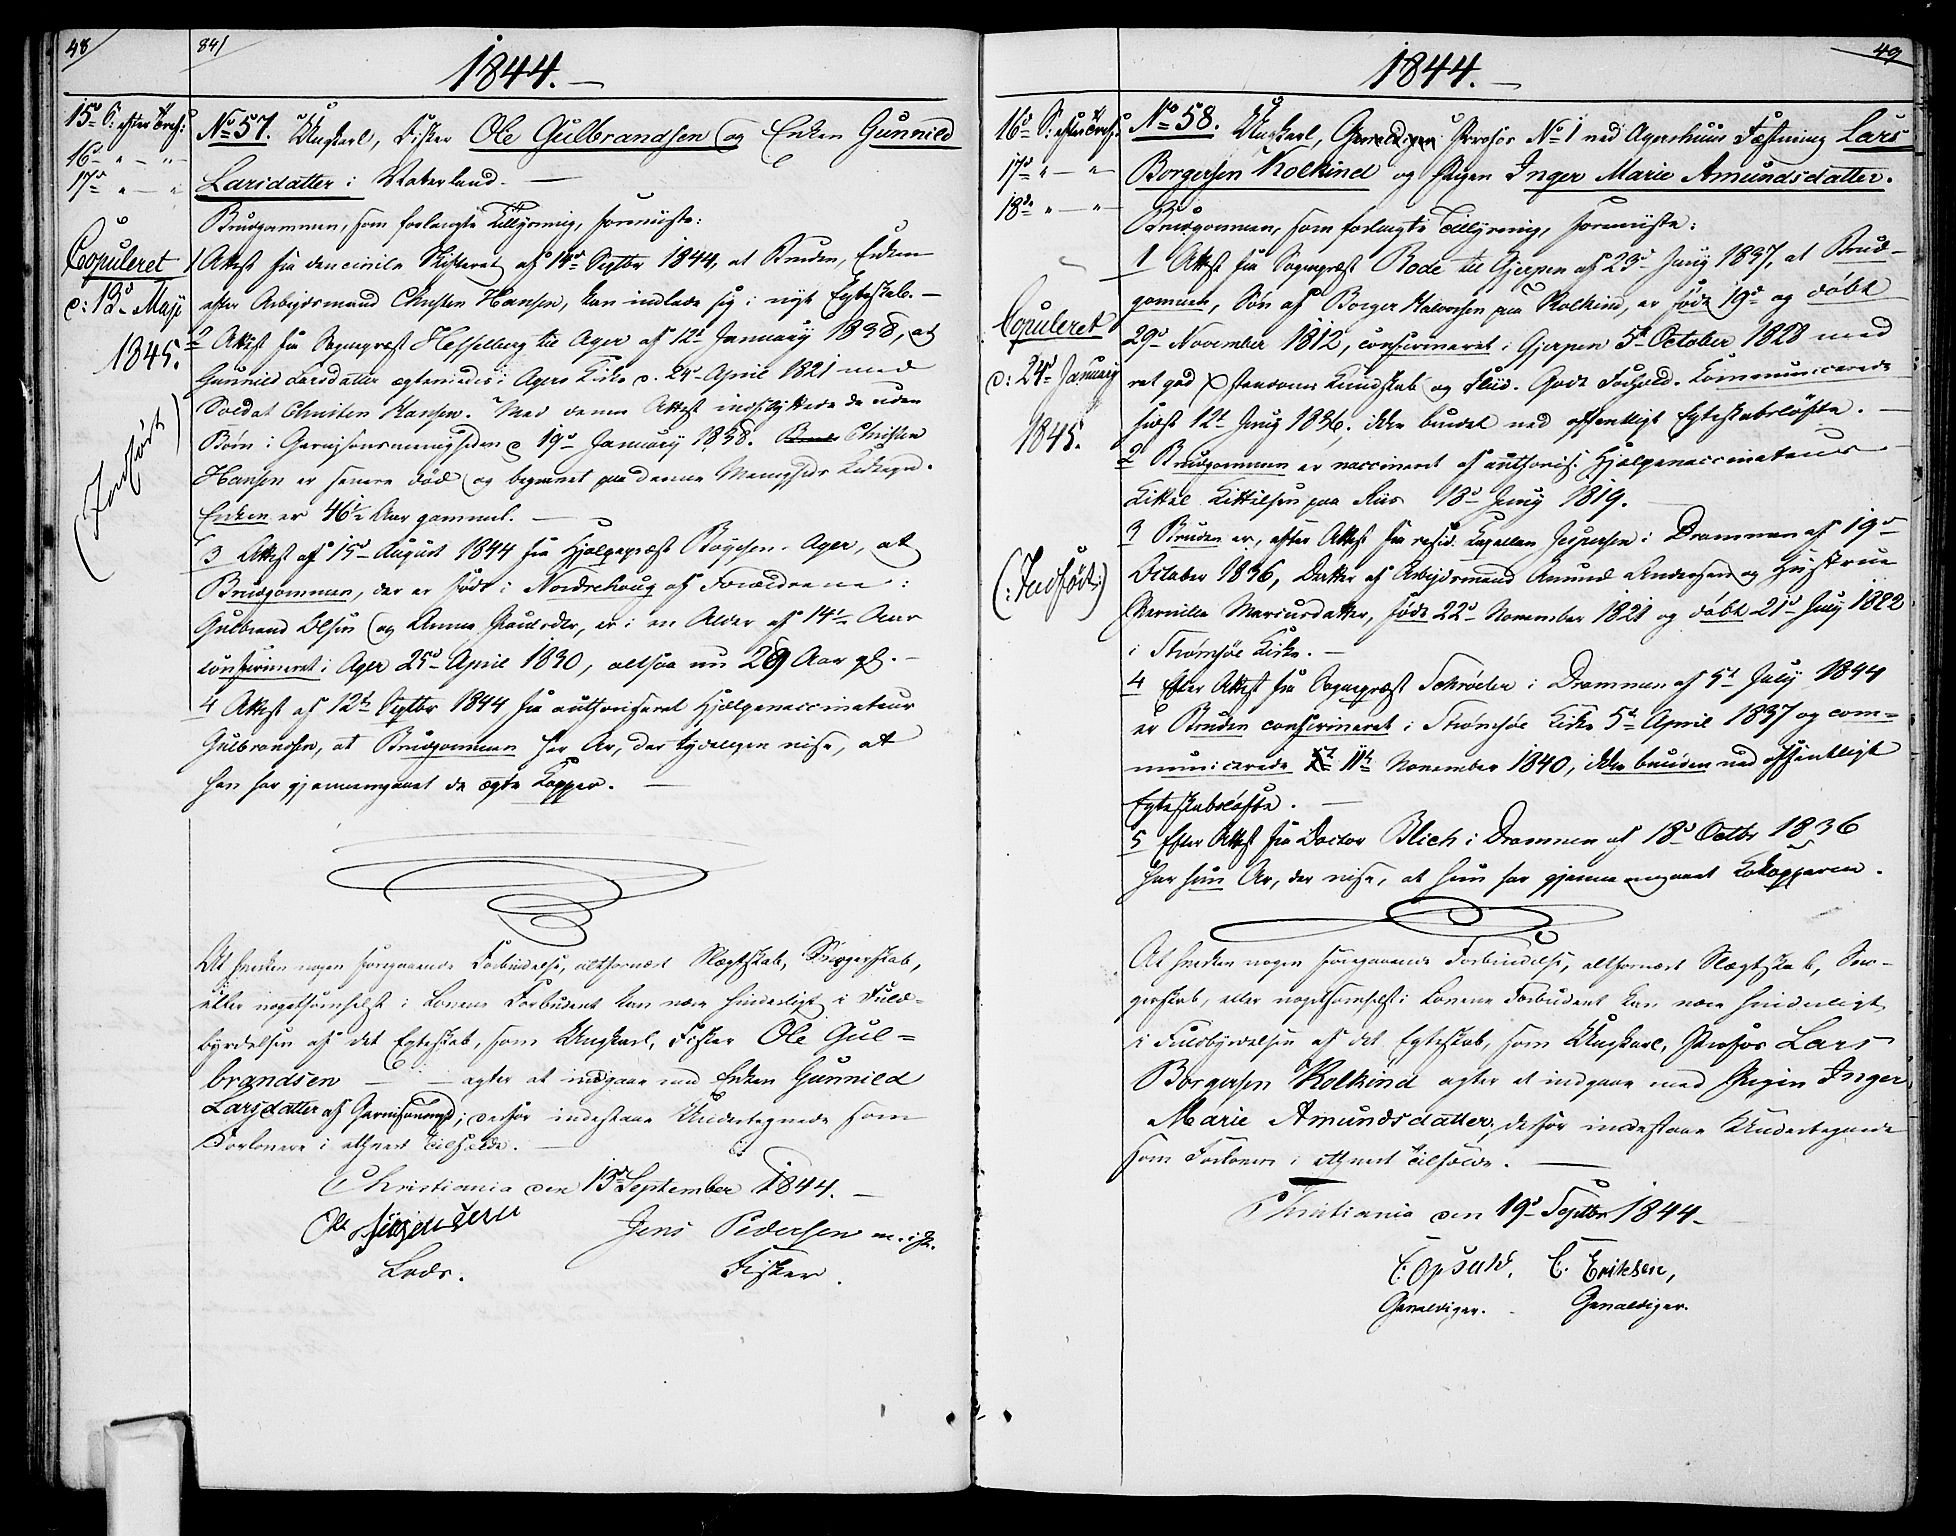 48
841
1844.
15d S: efter Tref:
16d " — "
17d " — "
Copuleret
d: 13d Maji
1845.
(Indført)
No 57. Ungkarl, Fisker Ole Gulbrandsen og Enken Gunnild
Larsdatter i Vaterland. —
Brudgommen, som forlangte Tillysning, foreviiste:
1 Attest fra den civile Skifteret af 14d Septbr 1844, at Bruden, Enken
efter Arbejdsmand Christen Hansen, kan indlade sig i nyt Egteskab. —
2 Attest fra Sognepræst Hesselberg til Ager af 12t January 1838, at
Gunnild Larsdatter egteviedes i Agers Kirke d. 24d April 1821 med
Soldat Christen Hansen. Med denne Attest indflyttede de uden
Børn i Garnisonsmenigheden d 19d January 1838. Christen
Hansen er senere død og begravet paa denne Menigheds Kirkegd.
Enken er 46½ Aar gammel. —
3 Attest af 15d August 1844 fra Hjelpepræst Røyesen Ager, at
Brudgommen, der er født i Norderhoug af Forældrene:
Gulbrand Olsen og Anne Paulsdr, er i en Alder af 14½ Aar
confirmeret i Ager 25d April 1830, altsaa nu 29 Aar gl. —
4 Attest af 12te Septbr 1844 fra authoriseret Hjelpevaccinateur
Gulbrandsen, at Brudgommen har Ar, der tydeligen vise, at
han har gjennemgaaet de ægte Kopper. —
At hverken nogen foregaaende Forbindelse, altfornært Slægtskab, Svogerskab,
eller nogetsomhelst i Lovene Forbudent kan være hinderligt i Fuld-
byrdelsen af det Egteskab, som Ungkarl, Fisker Ole Gul=
brandsen — — agter at indgaae med Enken Gunnild
Larsdatter af Garnisonsmgd; derfor indestaae Undertegnede som
Forlovere i ethvert Tilfælde. —
Christiania den 13d September 1844. —
Ole Jørgensen Jens Pedersen m. i P.
Lods. Fisker.
49
1844.
16d S: efter Tref:
17d " — "
18de " — "
Copuleret
d: 24d January
1845.
(:Indført:)
No 58. Ungkarl, Gevaldiger Profos No 1 ved Agershuus Fæstning Lars
Borgersen Kolkind og Pigen Inger Marie Amundsdatter.
Brudgommen, som forlangte Tillysning, foreviiste:
1 Attest fra Sognepræst Rode til Gjerpen af 23d Juny 1837, at Brud-
gommen, Søn af Borger Halvorsen paa Kolkind, er født 19d og døbt
29d November 1812, confirmeret i Gjerpen 5t October 1828 med
ret god Christendoms Kundskab og Flid. Godt Forhold. Kommunicerede
sidst 12t Juny 1836; ikke bundet ved offentligt Egteskabsløfte. —
2 Brudgommen er vaccineret af authoris: Hjelpevaccinateur
Kittil Kittilsen paa Riis 18d Juny 1819.
3 Bruden er, efter Attest fra resid. Kapellan Jespersen i Drammen af 19d
October 1836, Datter af Arbejdsmand Amund Andersen og Hustrue
Pernille Marcusdatter, født 22d November 1821 og døbt 21d July 1822
i Strømsøe Kirke. —
4 Efter Attest fra Sognepræst Schrøder i Drammen af 5t July 1844
er Bruden confirmeret i Strømsøe Kirke 5t April 1837 og com=
municerede 11te November 1840, ikke bunden ved offentligt
Egteskabsløfte. —
5 Efter Attest fra Doctor Blich i Drammen af 18d Octbr 1836
har hun Ar, der vise, at hun har gjennemgaaet Kokopperne.
At hverken nogen foregaaende Forbindelse, altfornært Slægtskab, Svo-
gerskab, eller nogetsomhelst i Lovene Forbudent kan være hinderligt
i Fuldbyrdelsen af det Egteskab, som Ungkarl, Profos Lars
Borgersen Kolkind agter at indgaae med Pigen Inger
Marie Amundsdatter, derfor indestaae Undertegnede
som Forlovere i ethvert Tilfælde. —
Christiania den 19d Septbr 1844 —
C: Opsahl. C. Eriksen,
Gevaldiger. Gevaldiger.